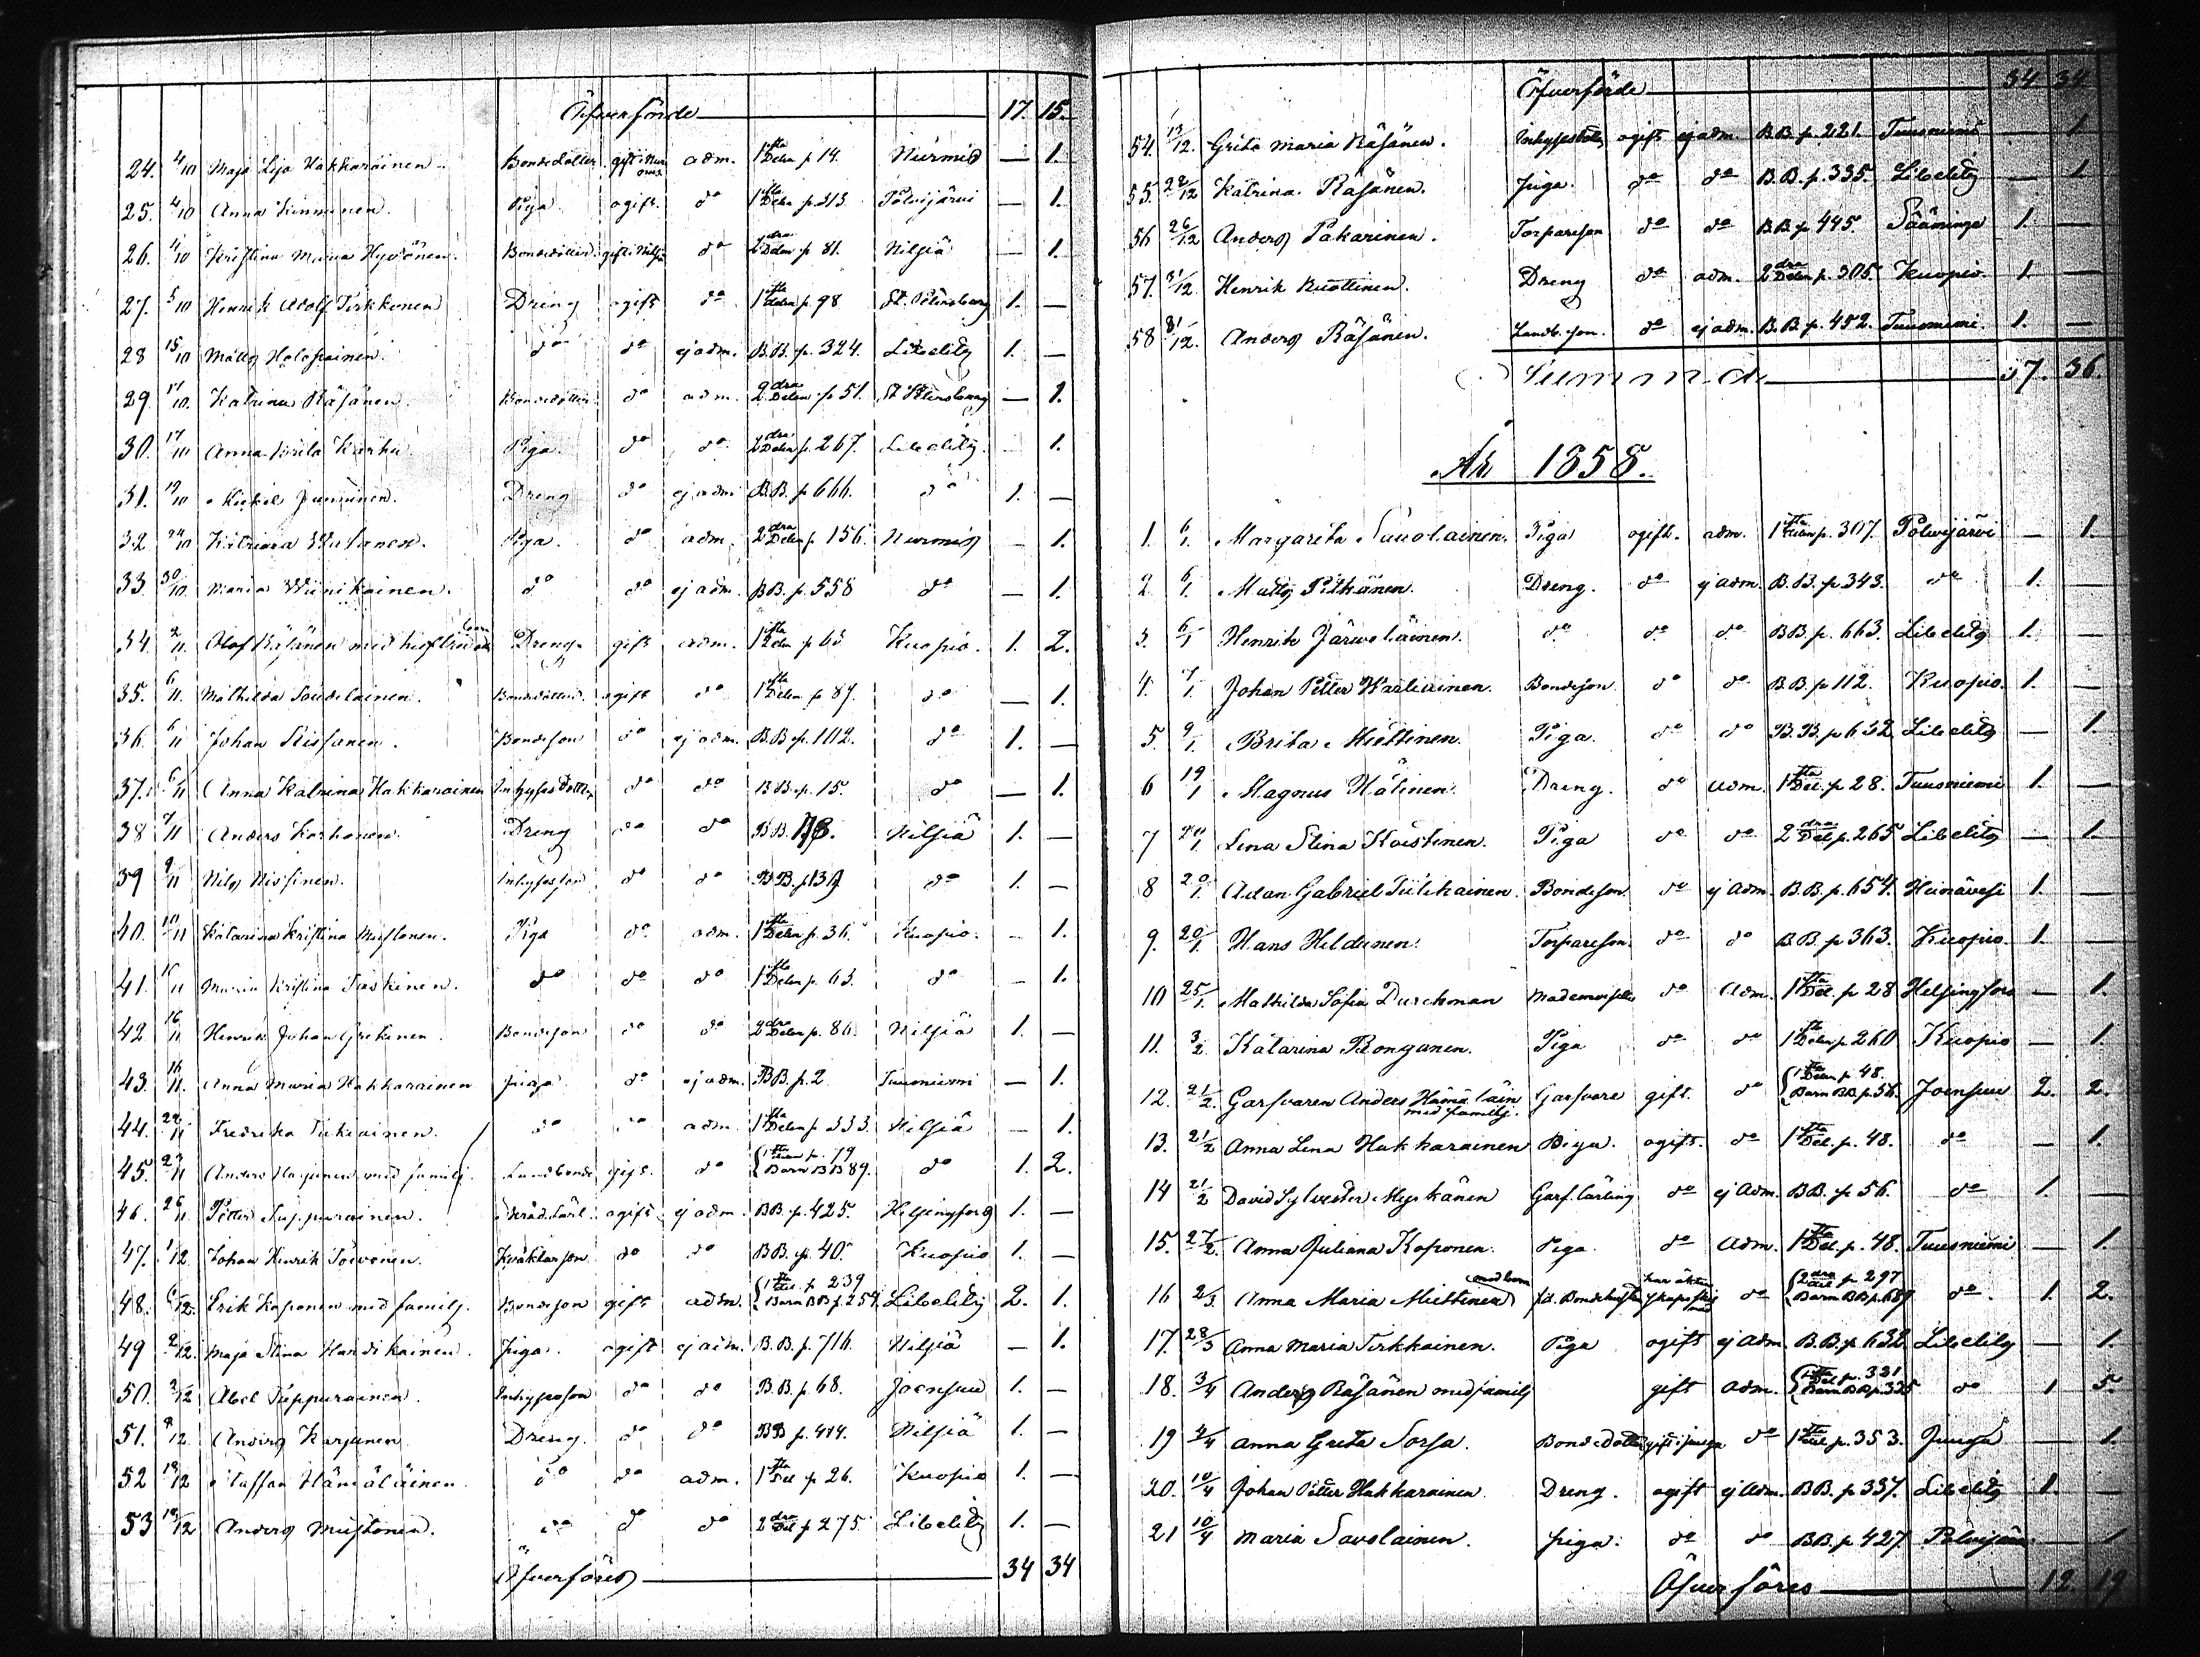 Öfverförde 17. 15.
24. 4/10 Maja Lisa Hakkarainen. Bondedotter. gift i Nur adm. 1sta Delen p 14. Nurmis — 1.
25. 4/10 Anna Kinnunen. Piga ogift. do 1sta Delen p. 313. Polvijärvi — 1.
26. 4/10 Kristina Maria Hyvönen. Bondedotter. gift i Nilsiä do 2dra Delen p 81. Nilsiä — 1.
27. 5/10 Henrik Adolf Tirkkonen Dreng ogift do 1sta Delen p 98 St. Petersburg 1. —
28 15/10 Matts Holopainen. do do ej adm. B.B. p. 324. Libelitz 1. —
29 17/10. Katrina Räsänen. Bondedotter do adm. 2dra Delen p 51. St. Petersburg — 1.
30. 17/10 Anna Brita Karhu Piga. do do 2dra Delen p. 267. Libelitz. — 1.
31. 19/10 Mickel Junninen. Dreng do ej adm B.B. p 666. do 1. —
32 24/10 Katrina Watanen. Piga. do adm. 2dra Delen p 156. Nurmis — 1.
33 30/10. Maria Wiinikainen. do do ej adm. BB. p. 558 do — 1.
34. 2/11. Olof Räsänen med hustru och barn Dreng gift adm. 1sta Delen p 63 Kuopio. 1. 2.
35. 6/11. Mathilda Soudelainen. Bondedotter. ogift do 1sta Delen p 87. do — 1.
36. 6/11 Johan Rissanen. Bondeson do ej adm. B.B. p. 102. do 1. —
37. 6/11 Anna Katrina Hakkarainen Inhyses Dotter do do BB. p. 15. do — 1.
38 7/11 Anders Korhonen. Dreng do do BB. Nilsiä 1. —
39 9/11 Nils Nissinen. Inhyseson do do BB. p 139 do 1. —
40. 10/11 Katarina Kristina Mustonen. Piga do adm. 1sta Delen p. 36. Kuopio. — 1.
41. 11/11 Maria Kristina Turkinen. do do do 1sta Delen p. 63. do — 1.
42 16/11 Henrik Johan Bondeson do do 2dra Delen p. 86. Nilsiä 1. —
43. 16/11. Anna Maria Hakkarainen piga do ej adm. BB. p. 2 Tuusniemi — 1.
44. 22/11 Fredrika Tukiainen. do do adm. 1sta Delen p 333. Nilsiä — 1.
45. 23/11 Anders Harjunen med familj. Landbonde gift. do {1sta Delen p. 79 Barn BB 89. do 1. 2.
46. 26/11. Petter Suppurainen. Skräd.lärl. ogift ej adm. BB. p. 425. Helsingfors 1. —
47. 1/12 Johan Henrik Toivonen. do do BB. p. 40. Kuopio 1. —
48. 6/12. Erik Koponen med familj. Bondeson gift adm. {1sta Del. p 239 Barn BB p. 254 Libelitz 2. 1.
49 2/12. Maja Stina Handikainen. piga. ogift ej adm. B.B. p. 716. Nilsiä — 1.
50. 3/12 Abel Puppurainen. Inhyseson do do B.B. p. 68. Joensuu 1. —
51. 8/12 Anders Karjunen Dreng. do do BB p. 414. Nilsiä 1. —
52 18/12 Staffan Hämäläinen do do adm. 1sta Del p 26. Kuopio 1. —
53 18/12 Anders Mustonen. do do do 2dra Del p 275. Libelitz 1. —
Öfverföres 34 34
Öfverförde 34 34
54. 13/12. Grita Maria Räsänen. Inhysesdotter ogift ej adm. B.B. p. 221. Tuusniemi — 1.
55. 22/12 Katrina Räsänen. piga. do do B.B. p. 335. Libelitz — 1.
56 26/12 Anders Pakarinen. Torpareson do do B.B. p 445. Sääminge 1. —
57. 31/12. Henrik Ruottinen. Dreng do adm. 2dra Delen p. 305. Kuopio 1. —
58 31/12. Anders Räsänen. Landb. son. do ej adm. B.B. p. 452. Tuusniemi. 1. —
Summa 37. 36.
År 1858.
1. 6/1. Margareta Savolainen. Piga ogift. adm. 1sta Delen p. 307. Polvijärvi — 1.
2 6/1. Matts Pitkänen. Dreng. do ej adm. B.B. p 343. do 1. —
3. 6/1 Henrik Järvelainen. do do do BB p. 663. Libelitz 1. —
4. 7/1. Johan Petter Karhainen. Bondeson. do do B.B. p 112. Kuopio. 1. —
5 9/1. Brita Miettinen. Piga. do do B.B. p 632 Libelitz — 1.
6 19/1 Magnus Hätinen. Dreng. do adm. 1sta Del. p 28. Tuusniemi 1. —
7 20/1 Lena Stina Koistinen. Piga do do 2dra Del. p. 265 Libelitz — 1.
8 20/1. Adam Gabriel Tiilikainen. Bondeson do ej adm. B.B. p. 654. Heinävesi 1. —
9. 20/1 Hans Hildunen. Torpareson. do do B.B. p 363. Kuopio. 1. —
10 25/1. Mathilda Sofia Durchman Mademoiselle do adm. 1sta Del. p 28 Helsingfors — 1.
11. 3/2. Katarina Ronganen. Piga do do 1sta Delen p 260 Kuopio — 1.
12. 21/2. Garfvaren Anders Hämäläin med familj. Garfvare gift. do {1sta Delen p 48. Barn BB. p. 56. Joensuu 2. 2.
13. 21/2 Anna Lena Hakkarainen Piga. ogift. do 1sta Del. p. 48. do — 1.
14 21/2 David Sylvester Myskänen Garf. lärling do ej adm. BB. p 56. do 1. —
15. 27/2. Anna Juliana Koponen. Piga. do adm. 1sta Del. p. 48. Tuusniemi — 1.
16 2/3 Anna Maria Miettinen med barn do {2dra Del p 297 Barn BB p. 689 do. 1. 2.
17. 28/3 Anna Maria Tirkkainen. Piga ogift ej adm. B.B. p 632 Libelitz — 1.
18. 3/4 Anders Räsänen med familj gift adm. {1sta Del p. 331 Barn BB p. 335 do 1 5.
19 2/4 Anna Greta Sorsa. Bondedotter gift i Junga do 1sta Del p. 353. Junga — 1.
20. 10/4 Johan Petter Hakkarainen. Dreng. ogift ej adm. BB. p 337. Libelitz 1. —
21 10/4 Maria Savolainen. piga. do do BB. p 427 Polvijärvi — 1
Öfverföres 12. 19